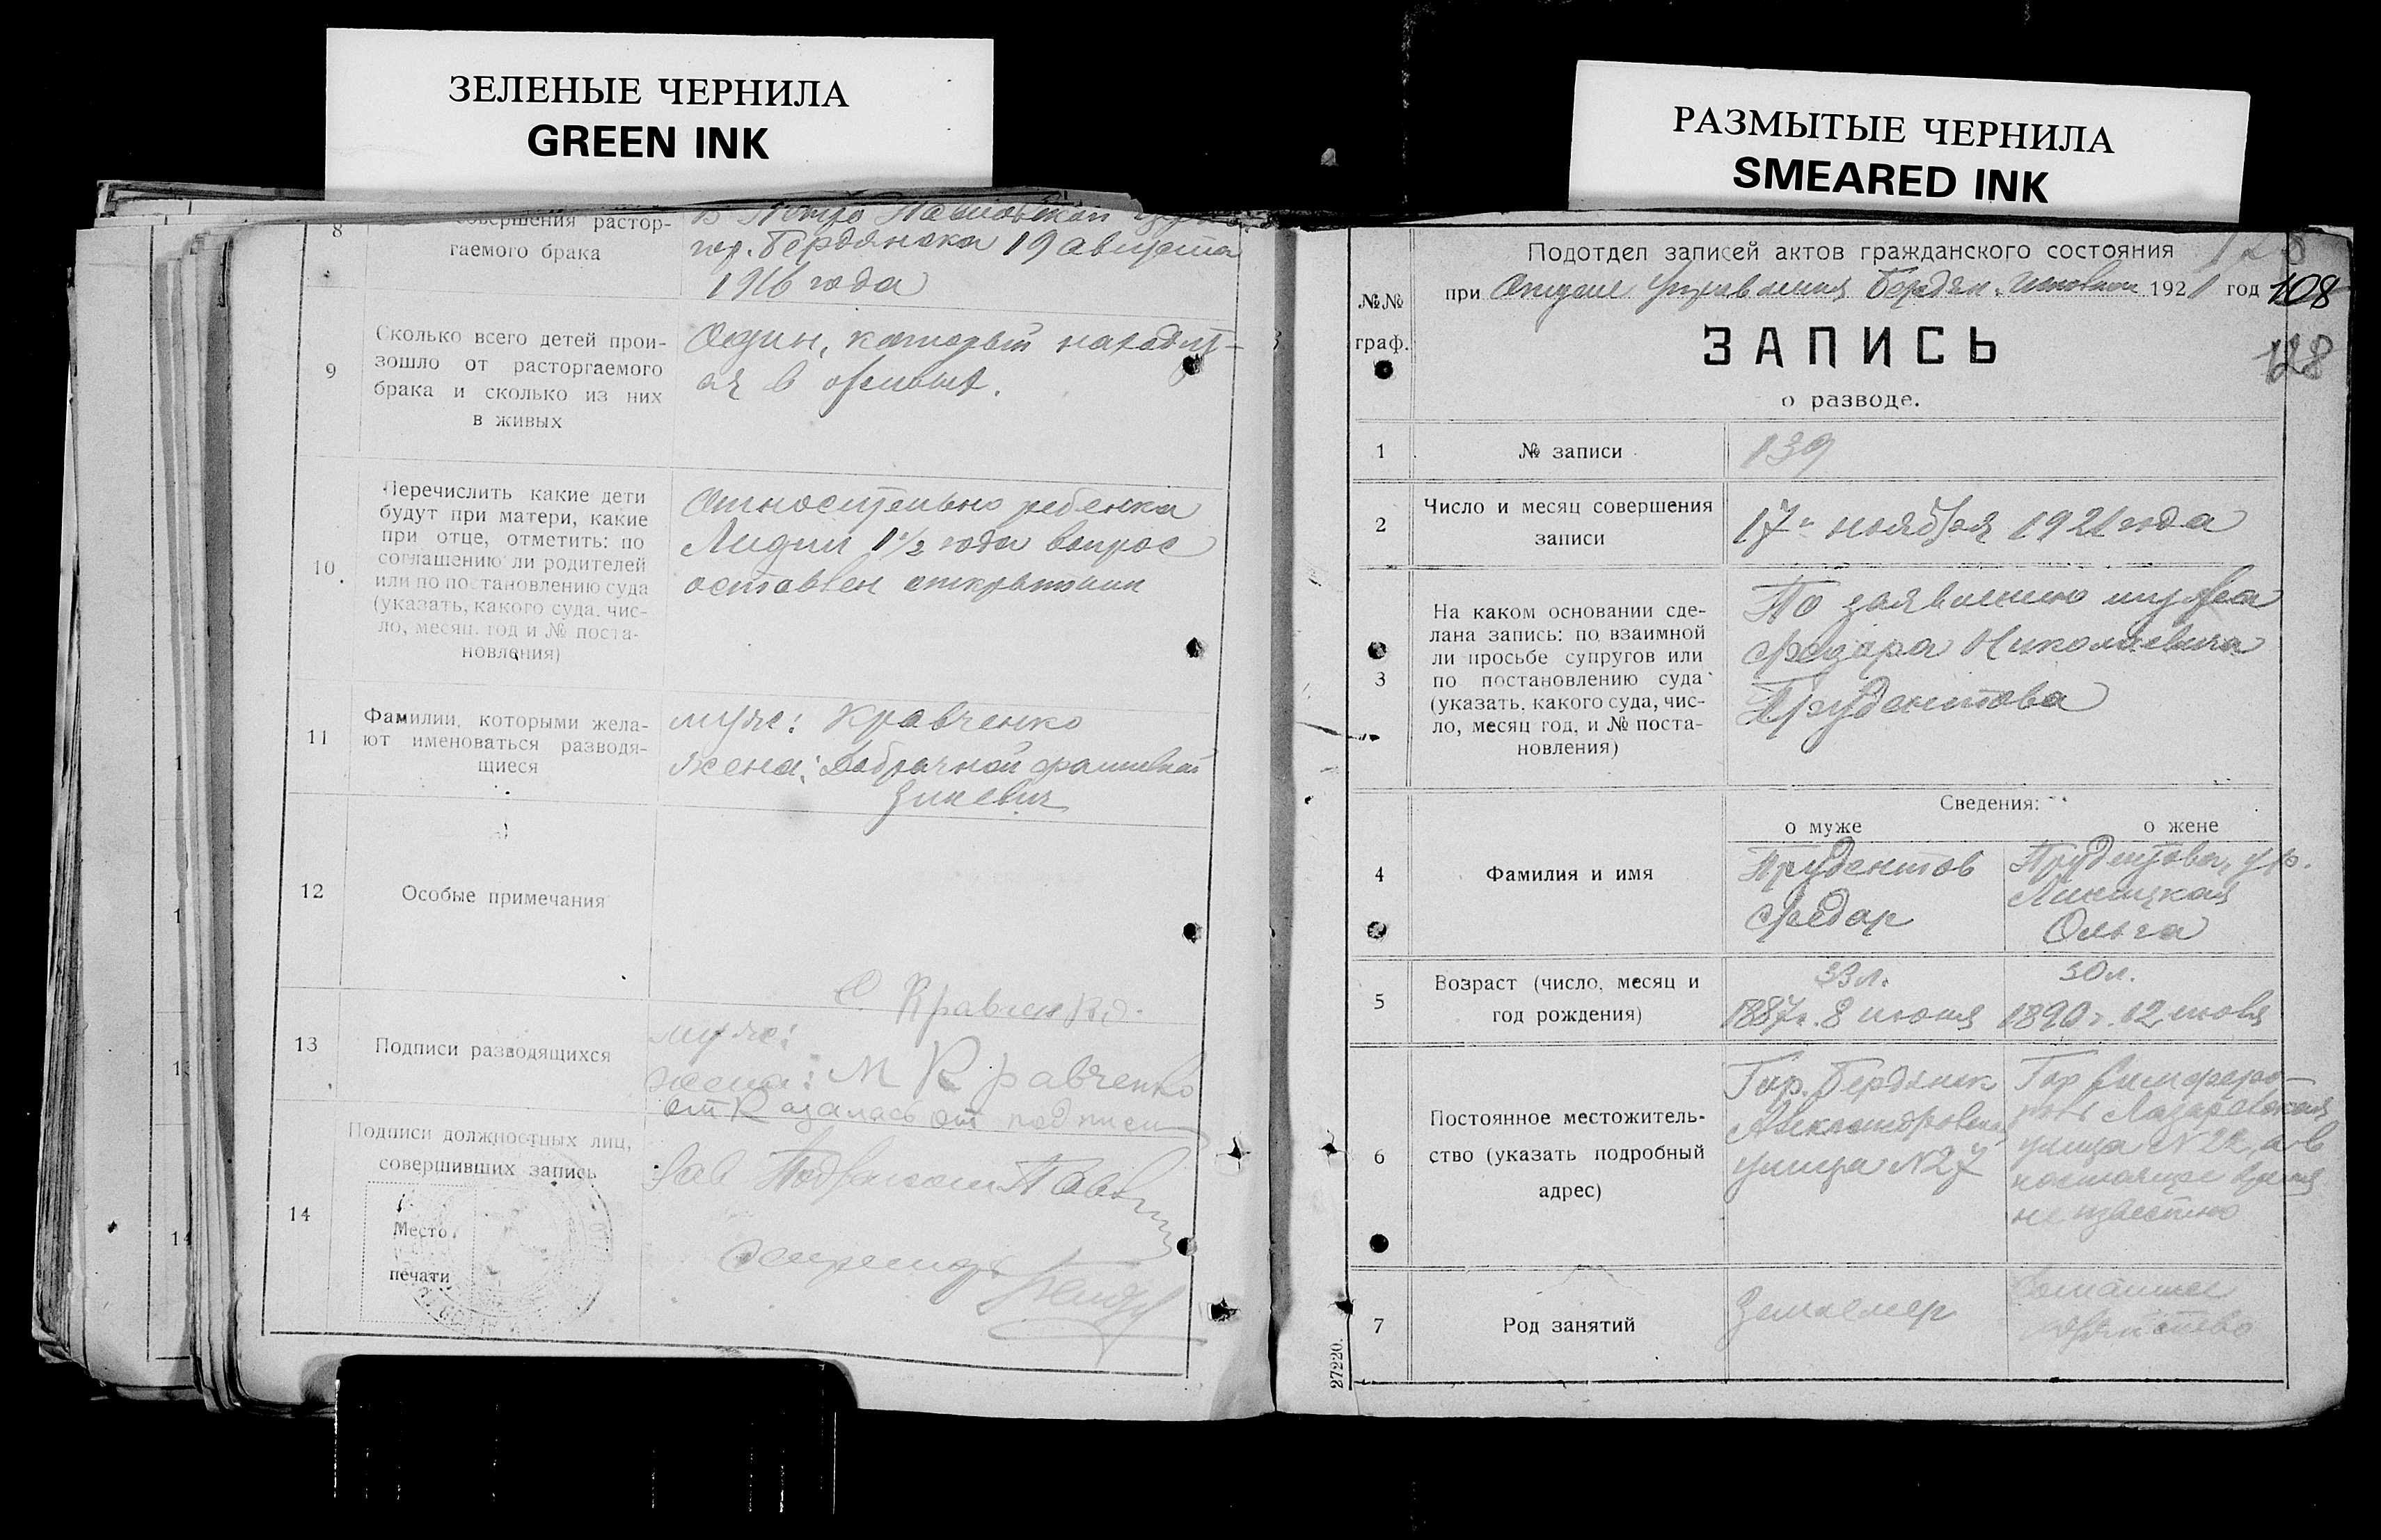 ЗЕЛЕНЫЕ ЧЕРНИЛА
GREEN INK
РАЗМЫТЫЕ ЧЕРНИЛА
SMEARED INK
8
совершения растор-
гаемого брака
В Петро Павловской
гор. Бердянска 19 августа
1916 года
9
Сколько всего детей прои-
зошло от расторгаемого
брака и сколько из них
в живых
Один, который находит-
ся в
10.
Перечислить какие дети
будут при матери, какие
при отце, отметить: по
соглашению ли родителей
или по постановлению суда
(указать, какого суда, чис-
ло, месяц, год и № поста-
новления)
Относительно ребенка
Лидии 1 1/2 года вопрос
оставлен открытым
11
Фамилии, которыми жела-
ют именоваться разводя-
щиеся
муж: Кравченко
жена: Добрачной фамилией
12
Особые примечания
Кравченко.
13
Подписи разводящихся
муж:
жена: М Кравченко
отказалась от подписи
14
Подписи должностных лиц,
совершивших запись
Место
печати
Зав
1
1
1
14
Подотдел записей актов гражданского состояния
128
при Отделе Управления Бердян. 1921 год
108
128
№№
граф.
ЗАПИСЬ
о разводе.
1
№ записи
139
2
Число и месяц совершения
записи
17 ноября 1921 года
3
На каком основании сде-
лана запись: по взаимной
ли просьбе супругов или
по постановлению суда
(указать, какого суда, чис-
ло, месяц год, и № поста-
новления)
По заявлению мужа
Федора Николаевича
Прудентова
Сведения:
о муже
о жене
4
Фамилия и имя
Прудентов
Федор
Прудентова, ур.
Линицкая
Ольга
5
Возраст (число, месяц и
год рождения)
33 л.
1887 г. 8 июня
30 л.
1890 г. 12 июля
6
Постоянное местожитель-
ство (указать подробный
адрес)
Гор. Бердянск
Александровская
улица N 27
Гор Симферо-
поль Лазаревская
улица N 22, а в
настоящее время
не известно
7
Род занятий
Землемер
Домашнее
хозяйство
27220.